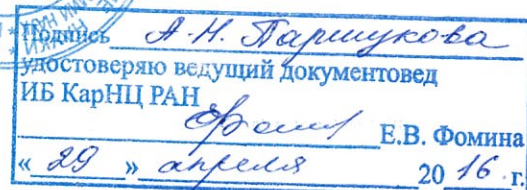 Подпись А.Н. Паршукова
удостоверяю ведущий документовед
ИБ КарНЦ РАН
Е.В. Фомина
« 29 » апреля 2016 г.